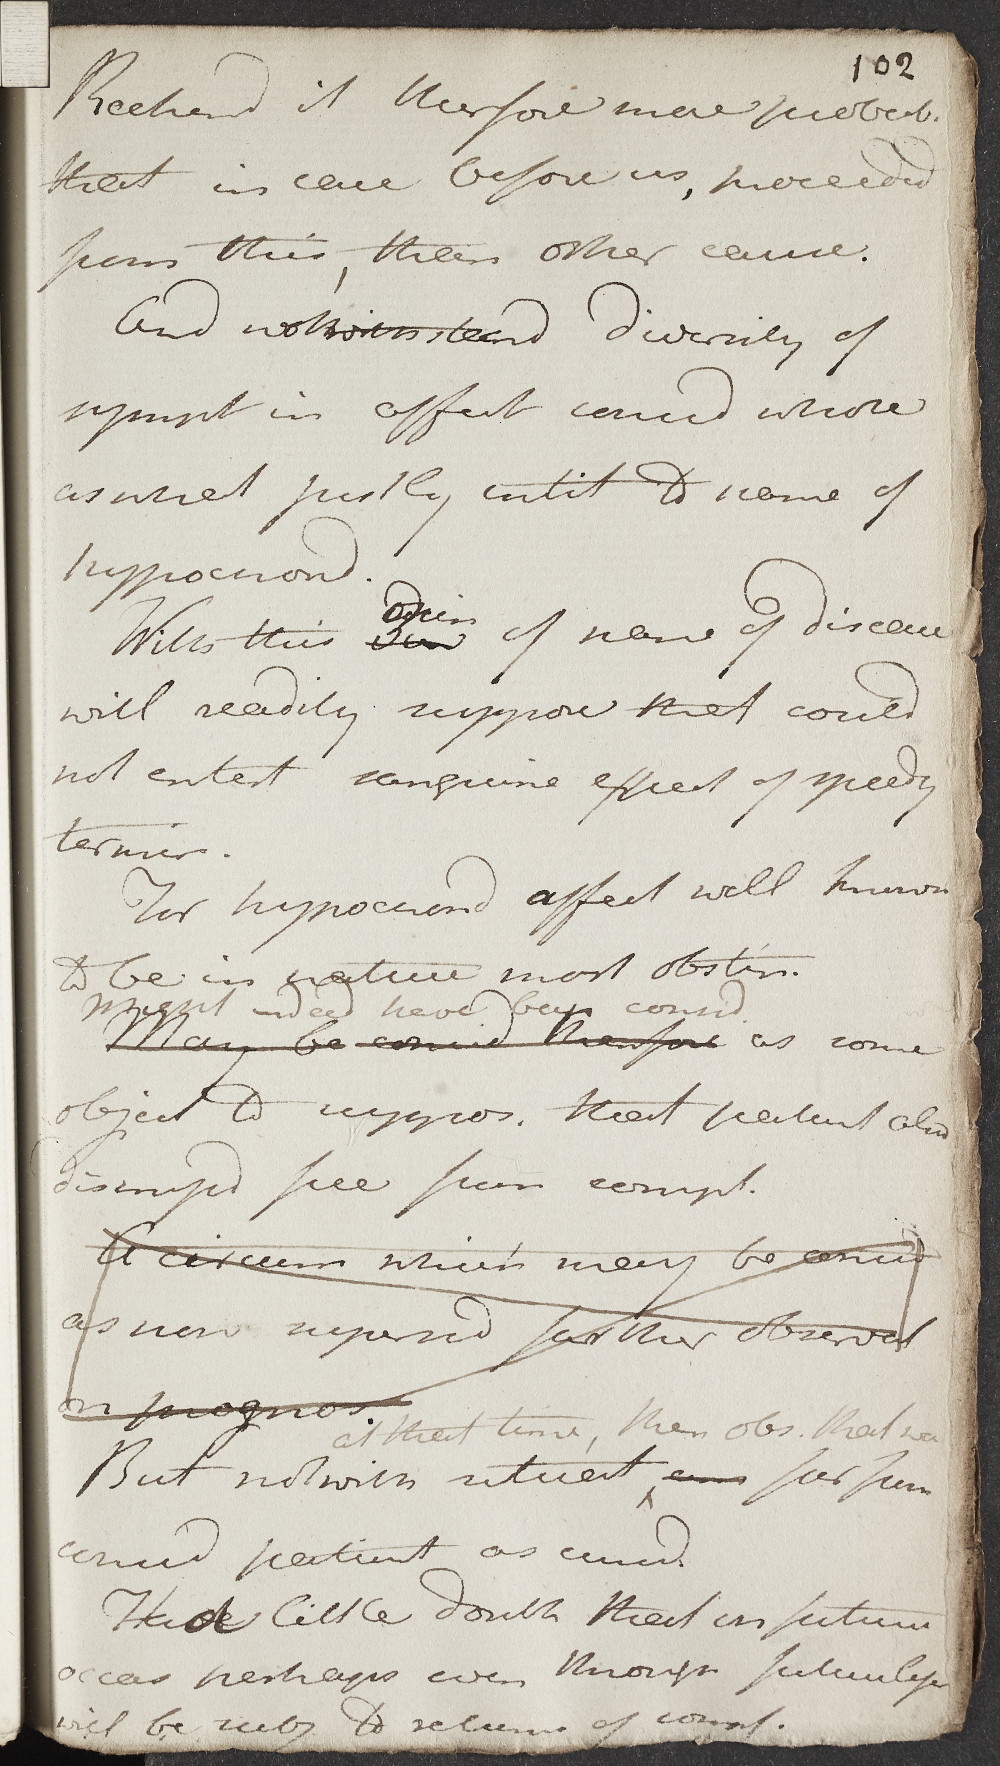 102
Reckend it therfore more probab.
that in case before us, proceeded
from this, than other cause.
And notwithstand diversity of
sympt in affect consid whole
as what justly entit to name of
hypocond.
opin
With this of name of disease
will readily suppose that could
not entert sanguine expect of speedy
termin.
For hypocond affect well known
to be in nature most obstin.
Might indeed have been consid
May be consid therefore as some
object to suppos. that patient also
dismiss'd free from compt.
A circum which may be consid
as now supersed further observat
on prognos.
at that time, then obs. that was
But notwith situat far from
consid patient as cured.
Had little doubt that in future
occas perhaps even through future life
will be subj to returns of compt.